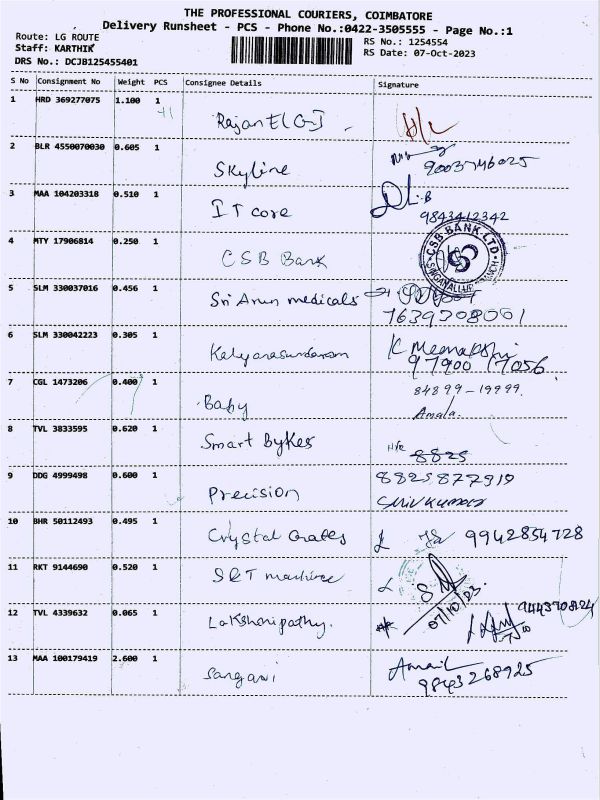 THE PROFESSIONAL COURIERS, COIMBATORE
Delivery Runsheet - PCS - Phone No.:0422-3505555 - Page No.:1
Route: LG ROUTE
Staff: KARTHIK
DRS No.: DCJB125455401
RS No.: 1254554
RS Date: 07-Oct-2023
S No Consignment No Weight PCS Consignee Details Signature
1 HRD 369277075 1.100 1
41
2 BLR 4550070030 0.605 1
Skyline 9003746025
3 MAA 104203318 0.510 1
IT core 9843412342
4 MTY 17906814 0.250 1
CSB Bank CSB BANK LTD
5 SLM 330037016 0.456 1
Sri Arun medicals
7639308001
6 SLM 330042223 0.305 1
Kalyanasundaram K Meenakshi
97900 17056
7 CGL 1473206 0.400 1
84899-19999
Baby Amala.
8 TVL 3833595 0.620 1
Smart Bykes 8825
9 DDG 4999498 0.600 1
8825877919
Precision Shivkumar
10 BHR 50112493 0.495 1
Crystal 9942854728
11 RKT 9144690 0.520 1
07/10/23
12 TVL 4339632 0.065 1
Lakshmipathy.
13 MAA 100179419 2.600 1
9843268925